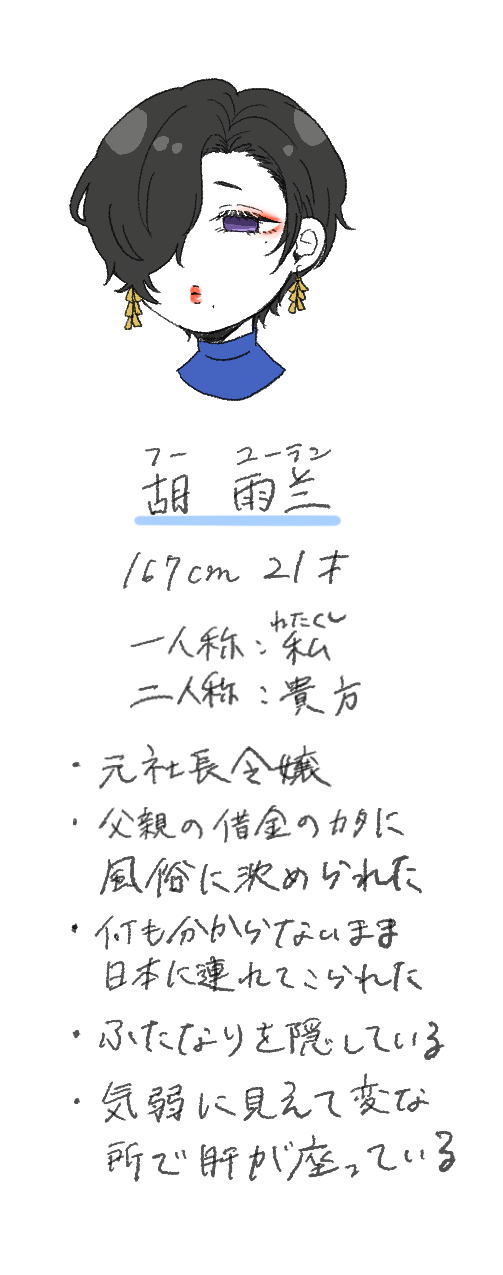 フー ユーラン
胡 雨兰
167cm 21才
わたくし
一人称：私
二人称：貴方
・元社長令嬢
・父親の借金のカタに
風俗に沈められた
・何も分からないまま
日本に連れてこられた
・ふたなりを隠している
・気弱に見えて変な
所で肝が座っている